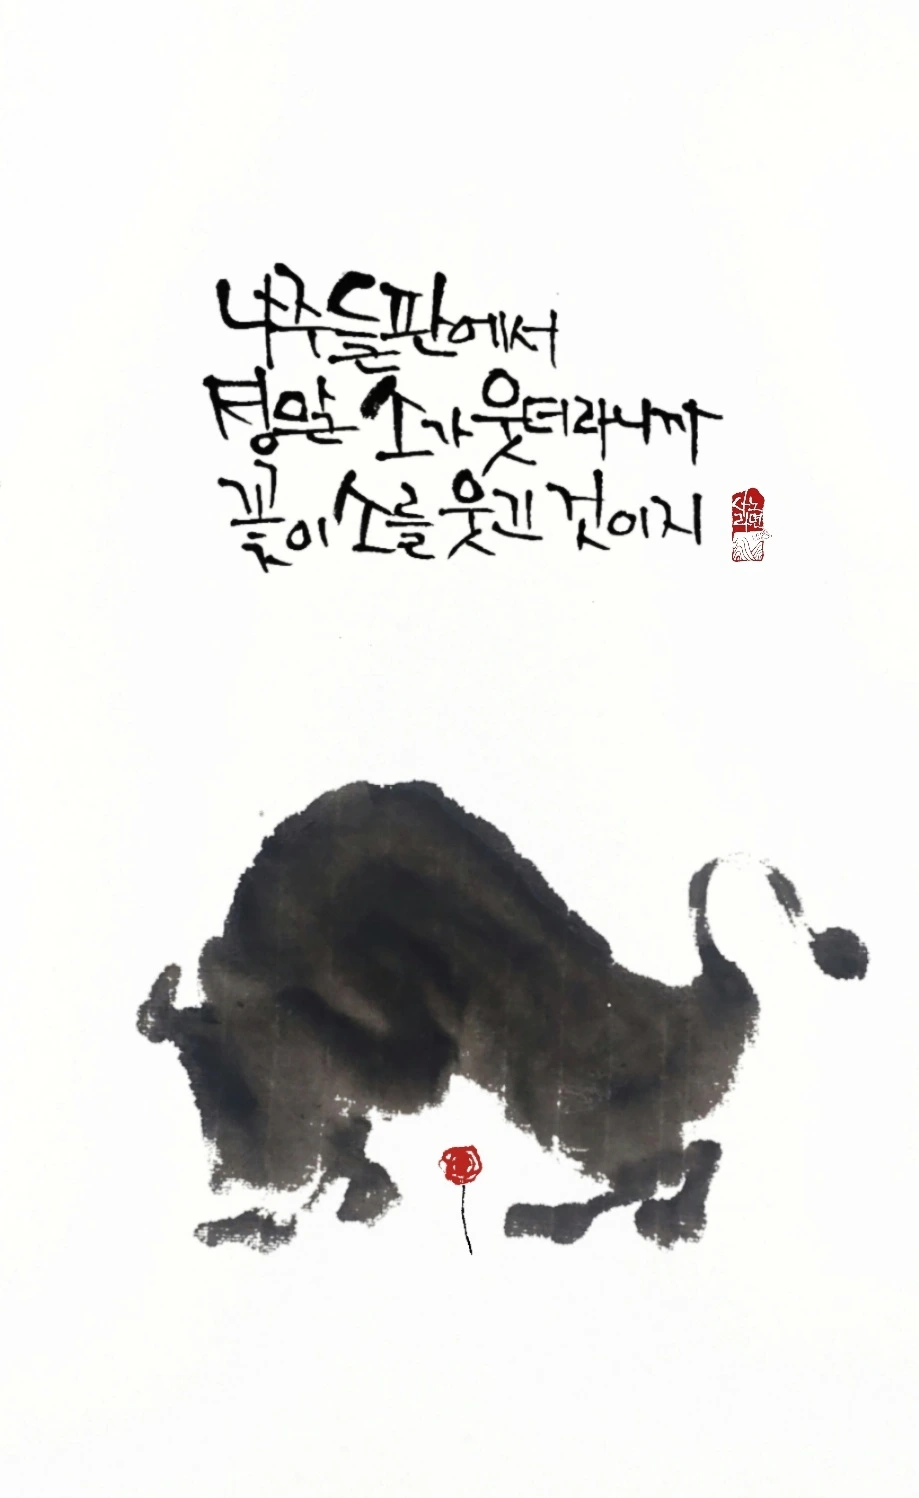 나주 들판에서
정말 소가 웃더라니까
꽃이 소를 웃긴 것이지